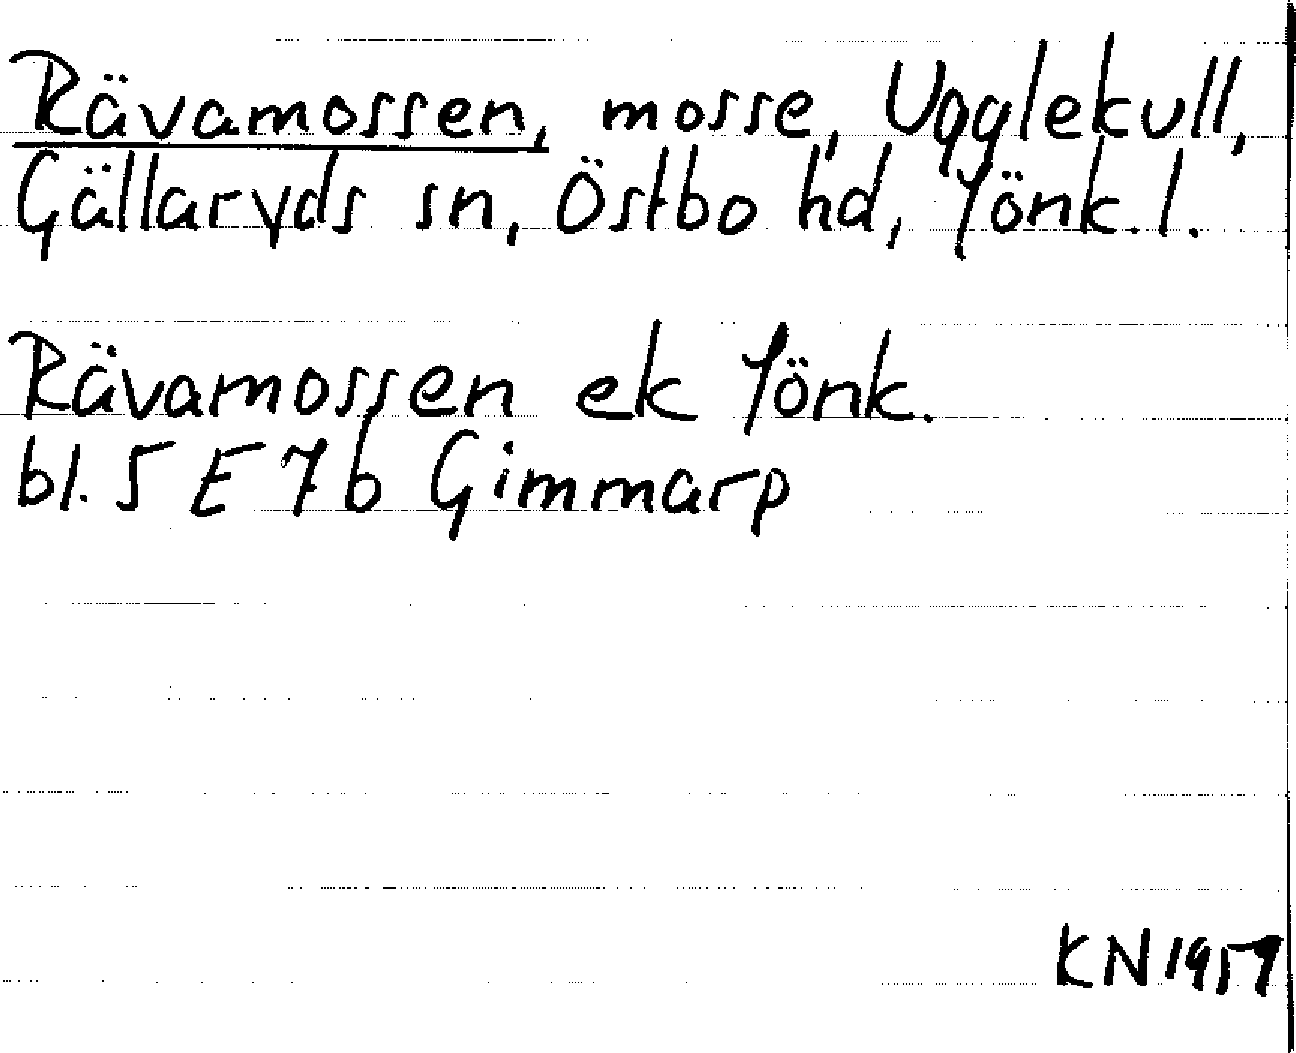 Rävamossen, mosse, Ugglekull,
Gällaryds sn, Östbo hd, Jönk. l.
Rävamossen ek Jönk.
bl. 5 E 7 b Gimmarp
KN 1957